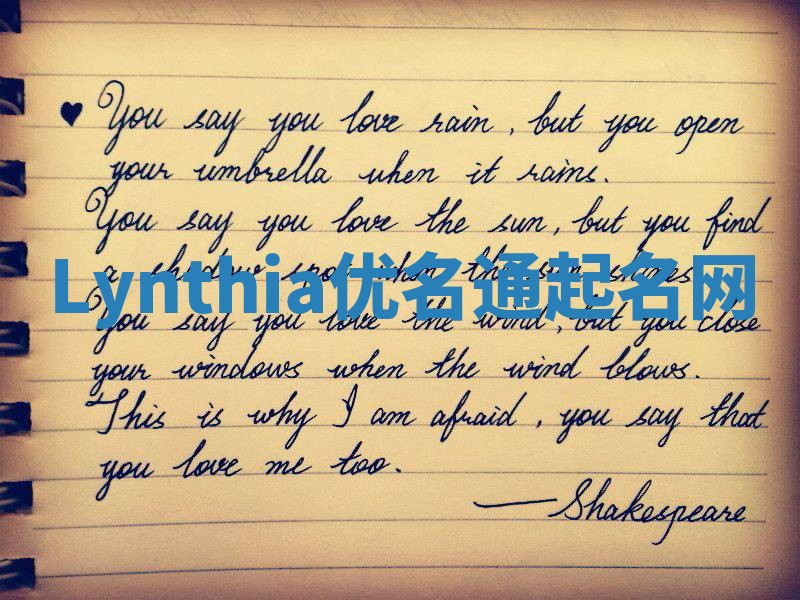 ♥ You say you love rain, but you open
your umbrella when it rains.
You say you love the sun, but you find
a shadow spot when the sun shines.
Lynthia优名通起名网
You say you love the wind, but you close
your windows when the wind blows.
This is why I am afraid, you say that
you love me too.
— Shakespeare